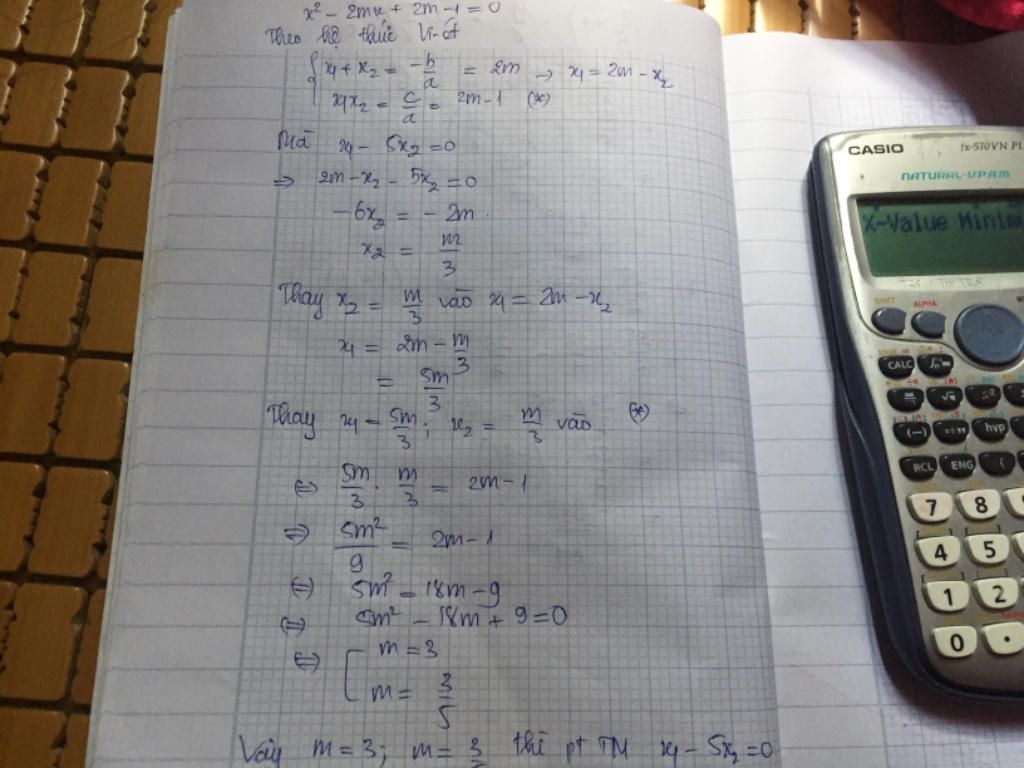 x² - 2mx + 2m - 1 = 0
Theo hệ thức Vi-ét
{ x₁ + x₂ = -b/a = 2m → x₁ = 2m - x₂
x₁x₂ = c/a = 2m - 1 (*)
Mà x₁ - 5x₂ = 0
⇒ 2m - x₂ - 5x₂ = 0
-6x₂ = -2m
x₂ = m/3
Thay x₂ = m/3 vào x₁ = 2m - x₂
x₁ = 2m - m/3
= 5m/3
Thay x₁ = 5m/3 ; x₂ = m/3 vào (*)
⇔ 5m/3 . m/3 = 2m - 1
⇒ 5m²/9 = 2m - 1
⇔ 5m² = 18m - 9
⇔ 5m² - 18m + 9 = 0
⇔ [ m = 3
m = 3/5
Vậy m = 3 ; m = 3 thì pt TM x₁ - 5x₂ = 0
CASIO fx-570VN PL
NATURAL-V.P.A.M.
X-Value Minim
SHIFT ALPHA
CALC
(-) hyp
RCL ENG (
7 8
4 5
1 2
0 .